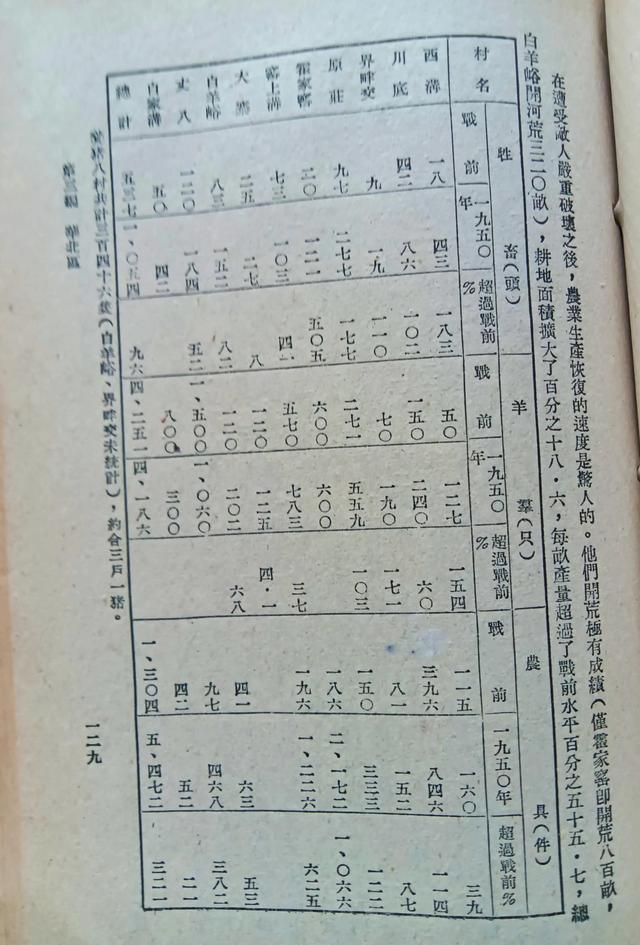 在遭受敵人嚴重破壞之後，農業生產恢復的速度是驚人的。他們開荒極有成績（僅霍家窰卽開荒八百畝，
白羊峪開河荒三二〇畝），耕地面積擴大了百分之十八·六，每畝產量超過了戰前水平百分之五十五·七，總
村名 牲畜（頭） 羊羣（只） 農具（件）
戰前 一九五〇年 超過戰前% 戰前 一九五〇年 超過戰前% 戰前 一九五〇年 超過戰前%
西溝 一八 四三 一八三 五〇 一二七 一五四 一一五 一六〇 三九
川底 四二 八六 一〇二 一五〇 二四〇 六〇 三九六 八四六 一一四
界畔交 九 一九 一一〇 七〇 一九〇 一七一 八一 一五二 八七
原莊 九七 二七七 一七七 二七一 五五九 一〇三 一五〇 三三三 一二二
霍家窰 二〇 一二一 五〇五 六〇〇 六〇〇 一八六 二、一七二 一、〇六六
窰上溝 七三 一〇三 四一 五七〇 七八三 三七 一九六 一、二二六 六二五
大寨 二五 二七 八 一二〇 一二五 四·一
白羊峪 八三 一五二 八二 一二〇 二〇二 六八 四一 六三 五三
丈八 一二〇 一八四 五二 一、五〇〇 一、〇六〇 九七 四六八 三八二
白家溝 五〇 四二 八〇〇 三〇〇 四二 五二 二一
總計 五三七 一、〇五四 九六 四、二五一 四、一八六 一、三〇四 五、四七二 三二一
養猪八村共計三百四十六隻（白羊峪、界畔交未統計），約合三戶一猪。
第三編 華北區
一二九